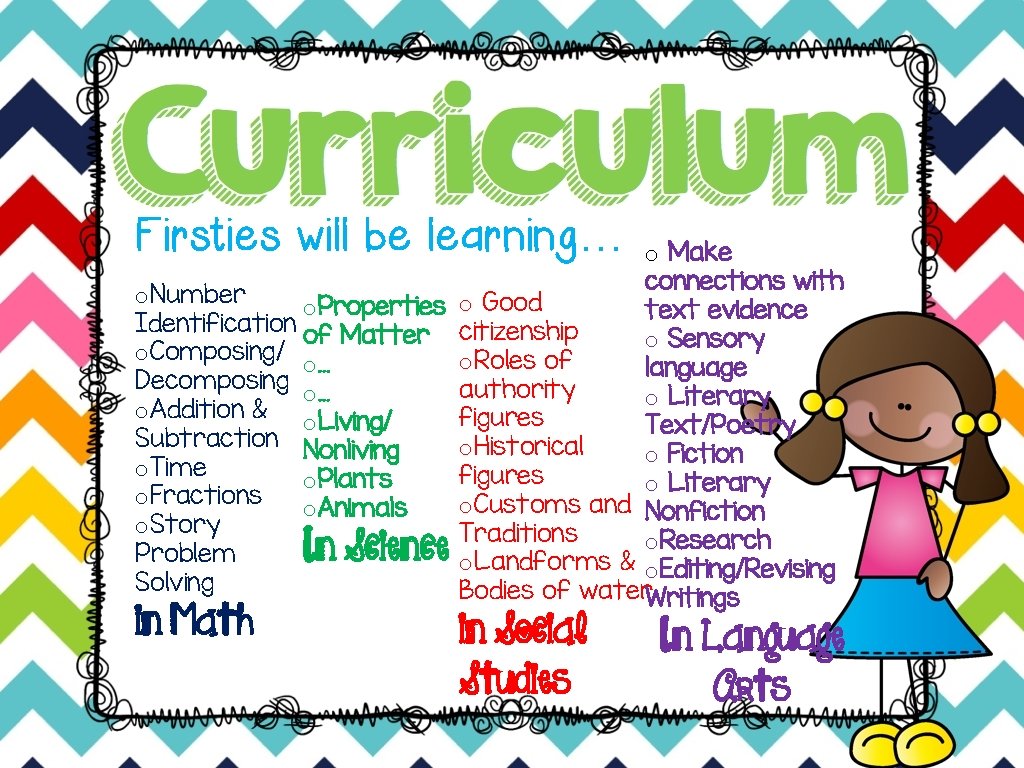 Curriculum
Firsties will be learning...
oNumber
Identification
oComposing/
Decomposing
oAddition &
Subtraction
oTime
oFractions
oStory
Problem
Solving
in Math
oProperties
of Matter
o...
o...
oLiving/
Nonliving
oPlants
oAnimals
In Science
o Good
citizenship
oRoles of
authority
figures
oHistorical
figures
oCustoms and
Traditions
oLandforms &
Bodies of water
in Social
Studies
o Make
connections with
text evidence
o Sensory
language
o Literary
Text/Poetry
o Fiction
o Literary
Nonfiction
oResearch
oEditing/Revising
Writings
In Language
Arts